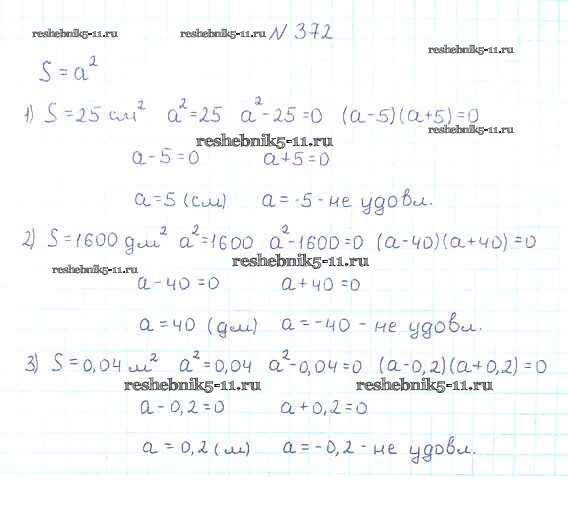 reshebnik5-11.ru reshebnik5-11.ru N 372
reshebnik5-11.ru
S = a²
1) S = 25 см² a² = 25 a² - 25 = 0 (a-5)(a+5) = 0
reshebnik5-11.ru reshebnik5-11.ru
a - 5 = 0 a + 5 = 0
a = 5 (см) a = -5 - не удовл.
2) S = 1600 дм² a² = 1600 a² - 1600 = 0 (a-40)(a+40) = 0
reshebnik5-11.ru reshebnik5-11.ru
a - 40 = 0 a + 40 = 0
a = 40 (дм) a = -40 - не удовл.
3) S = 0,04 м² a² = 0,04 a² - 0,04 = 0 (a-0,2)(a+0,2) = 0
reshebnik5-11.ru reshebnik5-11.ru
a - 0,2 = 0 a + 0,2 = 0
a = 0,2 (м) a = -0,2 - не удовл.